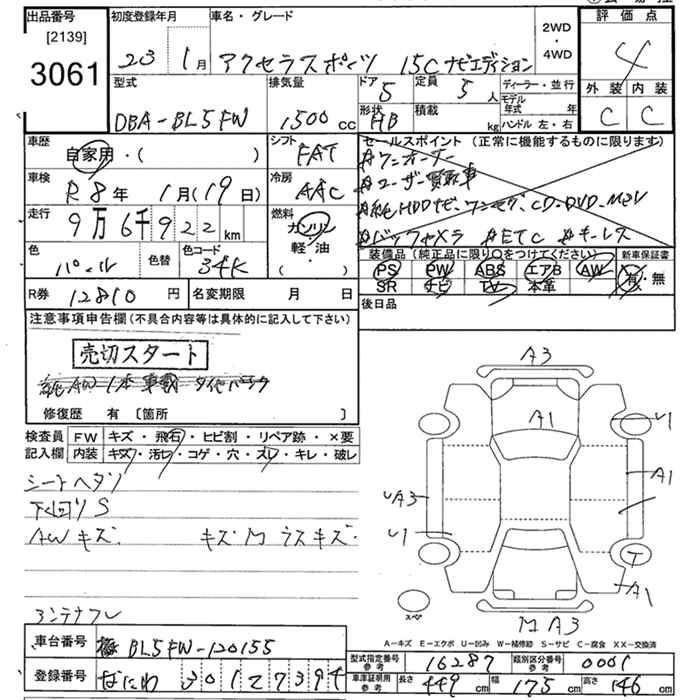 出品番号 初度登録年月 車名・グレード 2WD・4WD 評価点
[2139]
3061 23 1月 アクセラスポーツ 15C ナビエディション 4
型式 排気量 ドア 5 定員 5人 ディーラー・並行 外装 内装
DBA-BL5FW 1500cc 形状 HB 積載 kg モデル年式 年 C C
ハンドル 左・右
車歴 自家用・( ) シフト FAT セールスポイント (正常に機能するものに限ります)
#ワンオーナー
車検 R8年 1月(19日) 冷房 AAC #ユーザー買取車
走行 9万6千922km 燃料 ガソリン 軽・油 ( ) #純HDDナビ、ワンセグ、CD・DVD・MSV
#バックカメラ #ETC #キーレス
色 パール 色替 色コード 34K 装備品 (純正品に限り○をつけてください) 新車保証書
PS PW ABS エアB AW 有・無
R券 12810円 名変期限 月 日 SR ナビ TV 本革
注意事項申告欄(不具合内容等は具体的に記入して下さい) 後日品
売切スタート
純AW1本車載 タイヤパンク
修復歴 有 〔箇所 〕
検査員 FW キズ・飛石・ヒビ割・リペア跡・×要
記入欄 内装 キズ・汚レ・コゲ・穴・スレ・キレ・破レ
シートヘタリ
下回りS
AWキズ. キズM ラスキズ・
コンテナフレ
A3
A1
U1
A1
UA3
U1
T
A1
スペア
M A3
A-キズ E-エクボ U-凹み W-補修跡 S-サビ C-腐食 XX-交換済
車台番号 BL5FW-120155 型式指定番号 参考 16287 類別区分番号 参考 0001
登録番号 なにわ 301 27394 車庫証明用 参考 長さ 449cm 幅 175cm 高さ 146cm